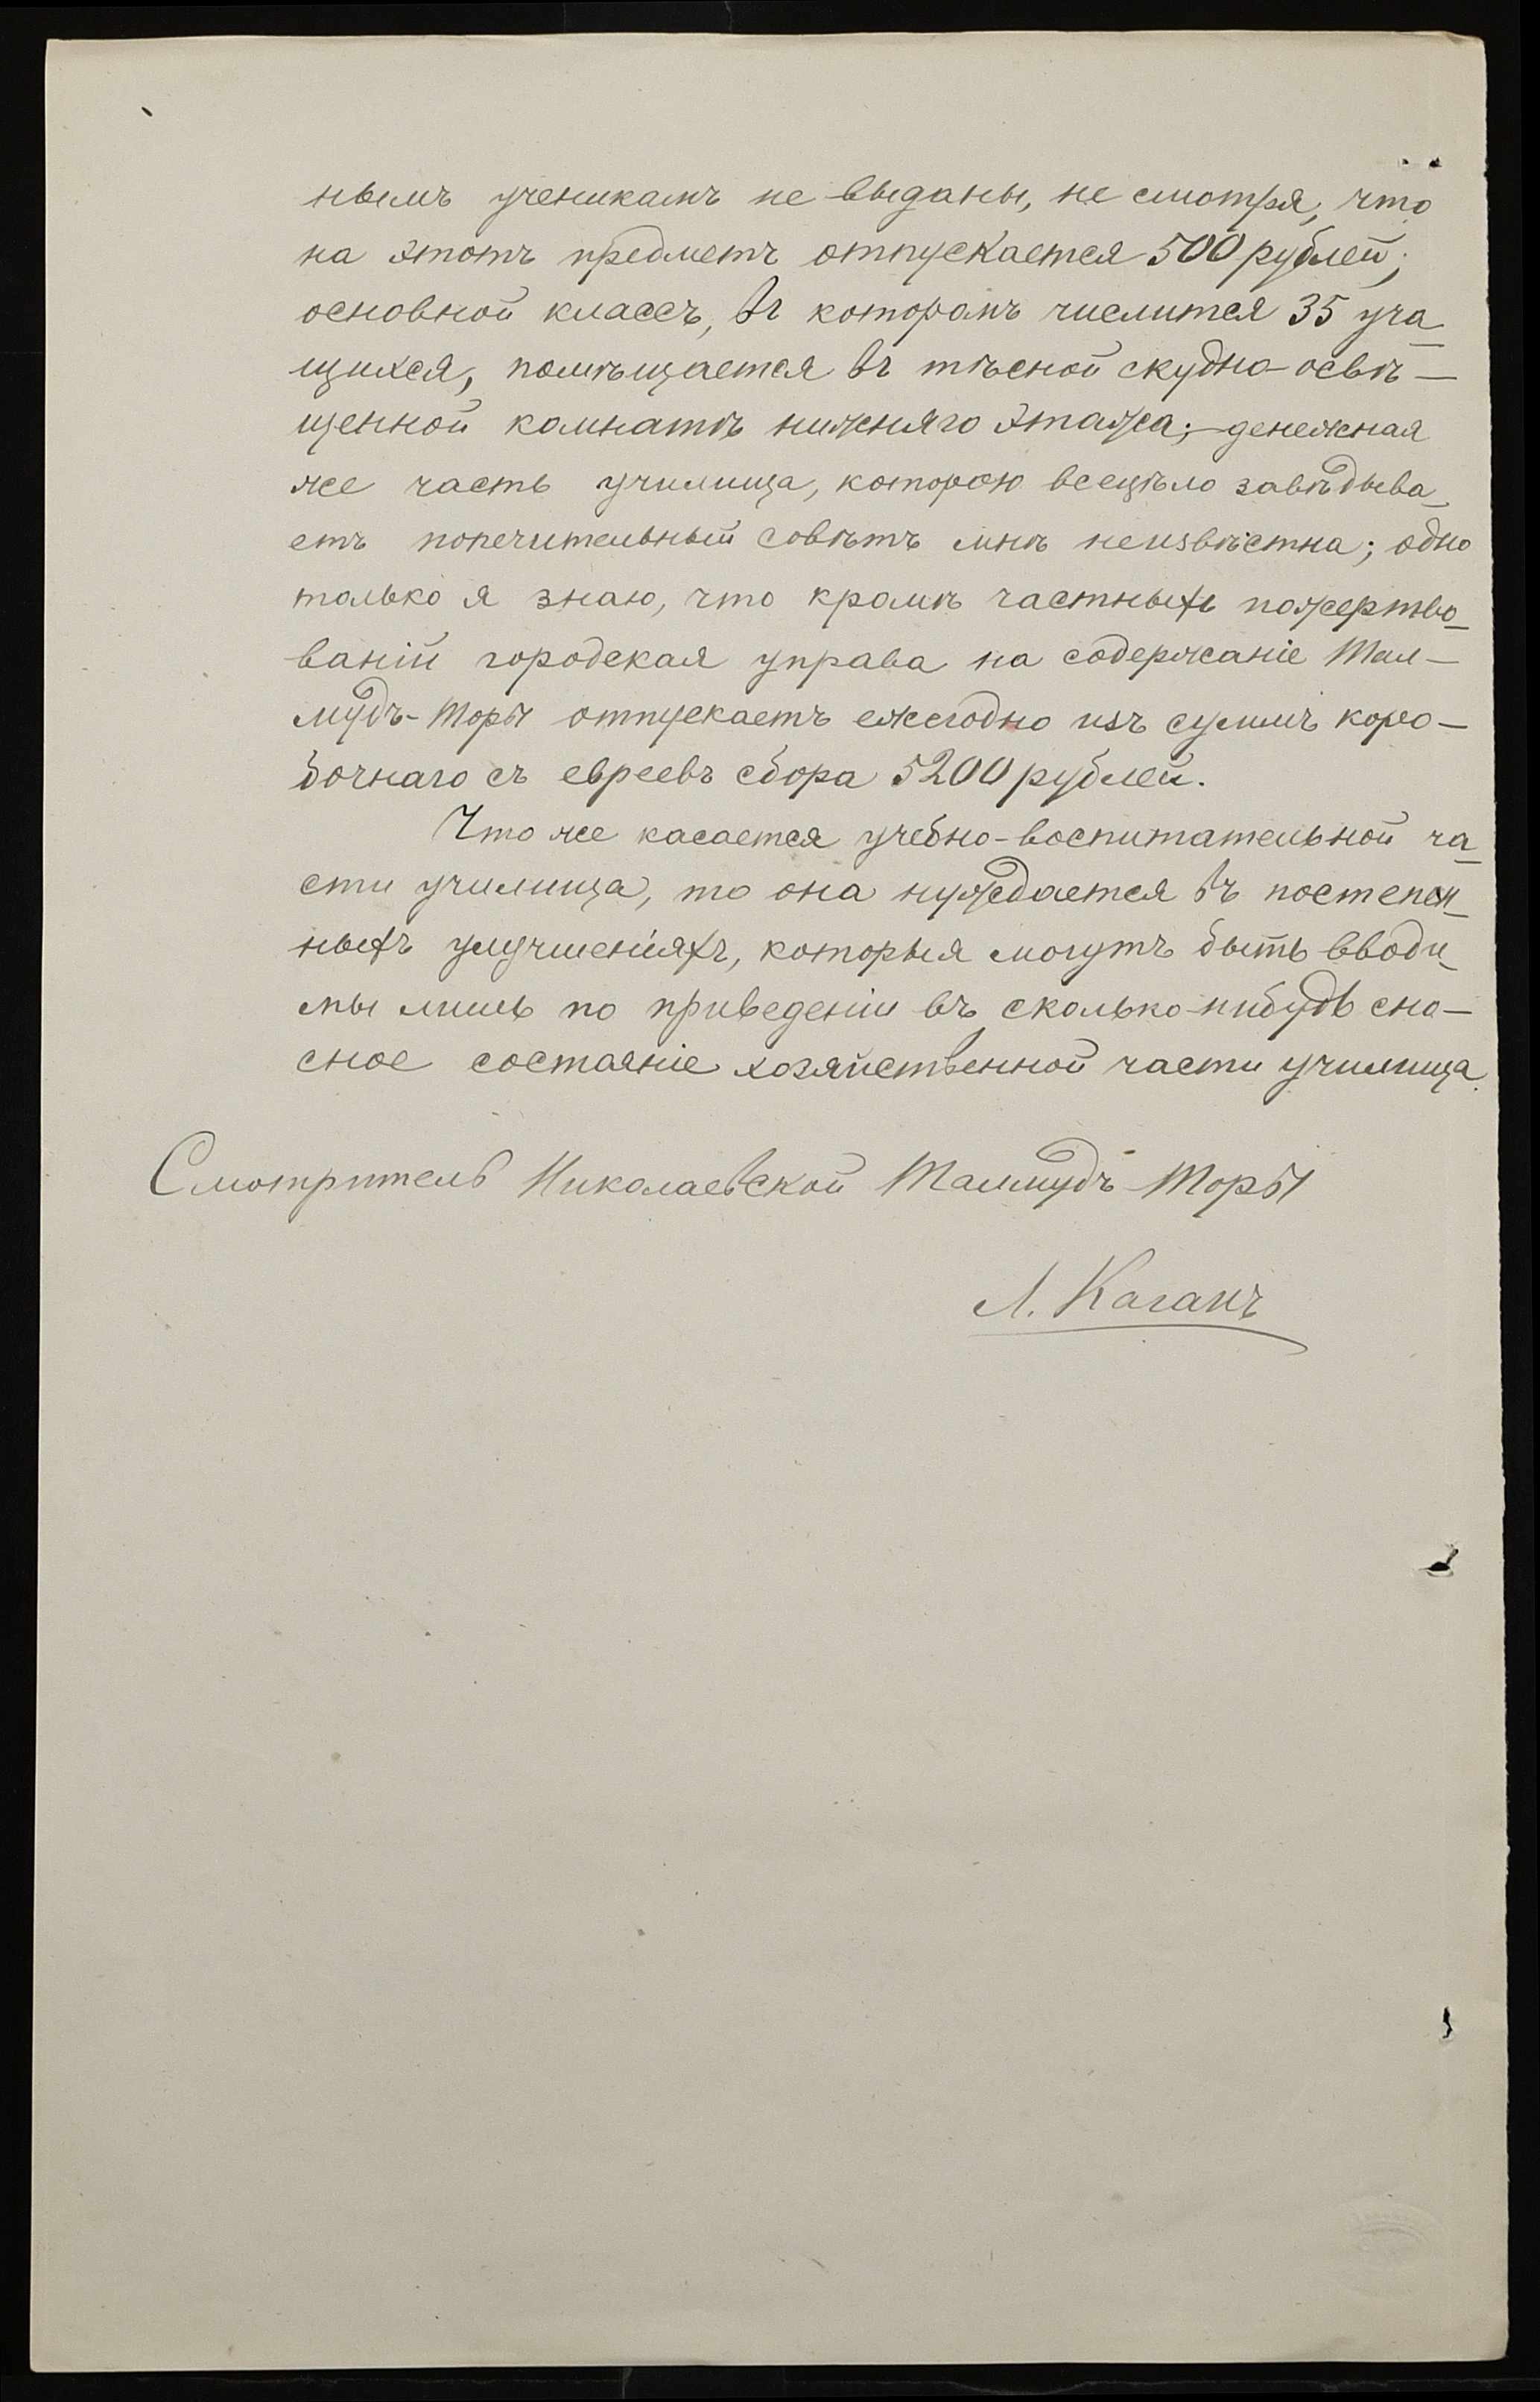 нымъ ученикамъ не выданы, не смотря, что
на этотъ предметъ отпускается 500 рублей;
основной классъ, въ которомъ числится 35 уча-
щихся, помѣщается въ тѣсной скудно-освѣ-
щенной комнатѣ нижняго этажа; - денежная
же часть училища, которою всецѣло завѣдыва-
етъ попечительный совѣтъ мнѣ неизвѣстна; одно
только я знаю, что кромѣ частныхъ пожертво-
ваній городская управа на содержаніе Тал-
мудъ-Торы отпускаетъ ежегодно изъ суммъ коро-
бочнаго съ евреевъ сбора 5200 рублей.
Что же касается учебно-воспитательной ча-
сти училища, то она нуждается въ постепен-
ныхъ улучшеніяхъ, которыя могутъ быть вводи-
мы лишь по приведеніи въ сколько-нибудь сно-
сное состояніе хозяйственной части училища.
Смотритель Николаевской Талмудъ-Торы
Л. Каганъ